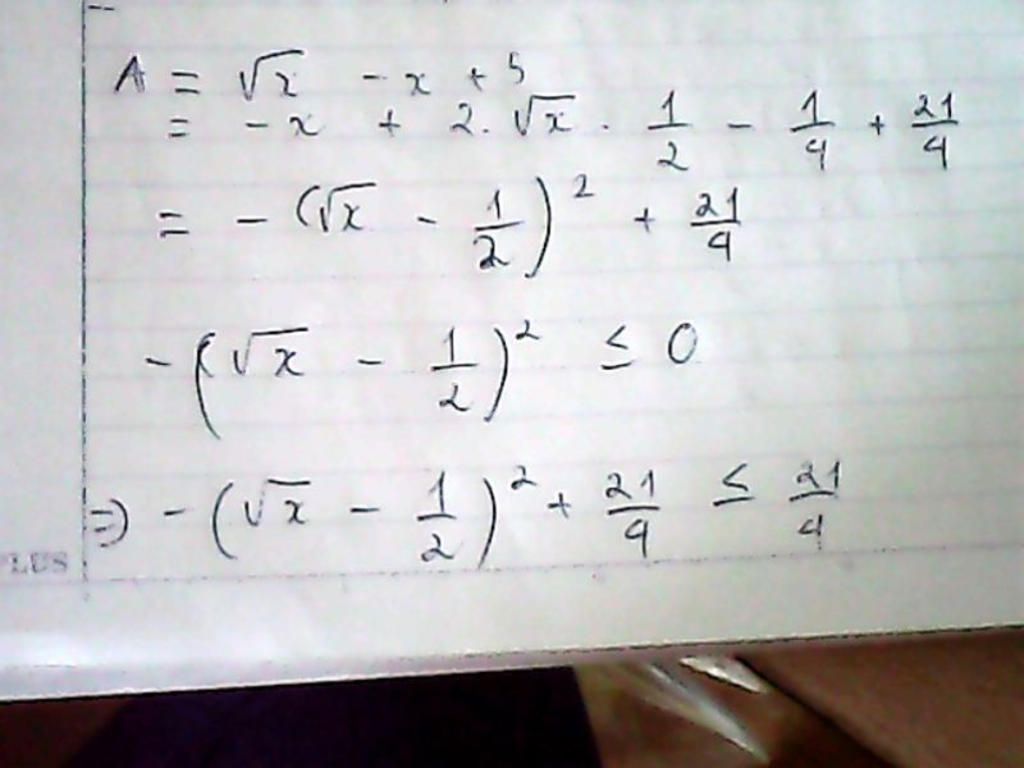 A = √x - x + 5
= - x + 2 . √x . 1/2 - 1/4 + 21/4
= - (√x - 1/2)² + 21/4
- (√x - 1/2)² ≤ 0
⇒ - (√x - 1/2)² + 21/4 ≤ 21/4
LUS